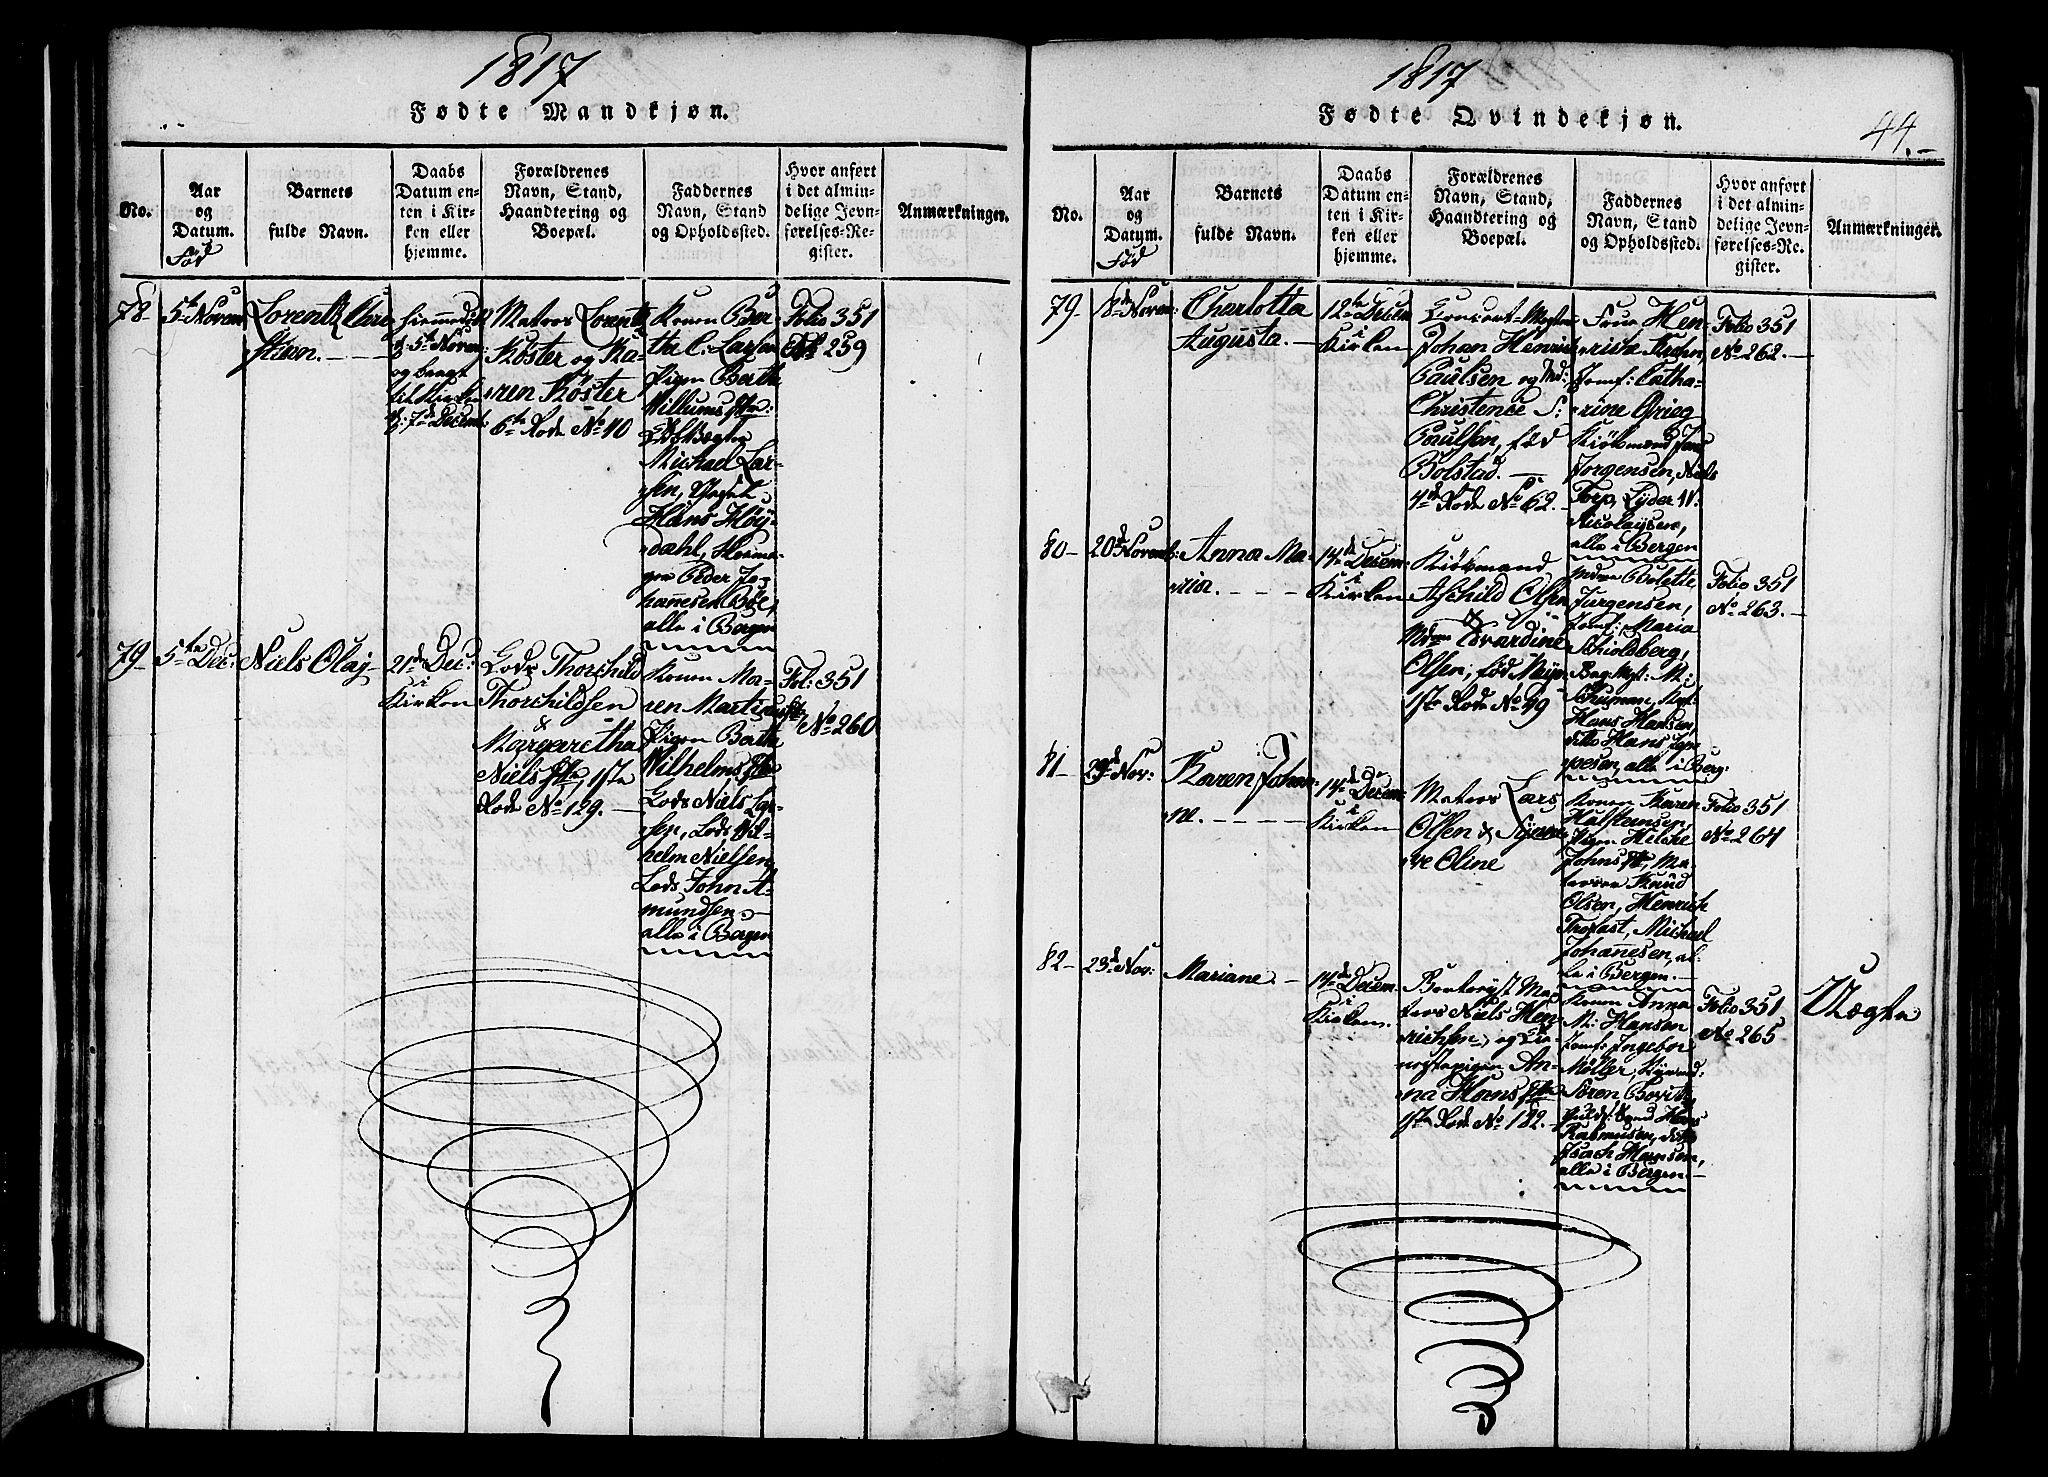 1817
Fødte Mandkjøn.
No.
Aar
og
Datum.
Fød
Barnets
fulde Navn.
Daabs
Datum en-
ten i Kir-
ken eller
hjemme.
Forældrenes
Navn, Stand,
Haandtering og
Boepæl.
Faddernes
Navn, Stand
og Opholdssted.
Hvor anført
i det almin-
delige Jevn-
førelses-Re-
gister.
Anmærkninger.
78-
5te Novem
Lorentz
hiemmedøbt
d: 5te Novem:
og bragt
til Kirken
d: 7de Decemb:
Matros Lorentz
Köster og Ka-
ren Köster
6te Rode No 40
Konen Ber-
tha C: Larsen
Pigen Berthe
Willums dtr:
Michael Lar-
sen,
Hans Høy-
dahl, Skoma-
ger Peder Jo-
hannesen Bøe,
alle i Bergen
Folio 351
No 259
79-
5te Dec:
Niels Olai
21de Dec:
i
Kirken
Lods Thorchild
Thorchildsen
&
Margaretha
Niels dtr, 1ste
Rode No 129.
Konen Ma-
ren Martinusdtr
Pigen Berthe
Wilhelms dtr
Lods Niels Lar-
sen, Lods Wil-
helm Nielsen,
Lods John A-
mundsen.
alle i Bergen
Fol: 351
No 260
1817
Fødte Qvindekjøn.
44.-
No.
Aar
og
Datum.
Fød
Barnets
fulde Navn.
Daabs
Datum en-
ten i Kir-
ken eller
hjemme.
Forældrenes
Navn, Stand,
Haandtering og
Boepæl.
Faddernes
Navn, Stand
og Opholdssted.
Hvor anført
i det almin-
delige Jevn-
førelses-Re-
gister.
Anmærkninger.
79-
18de Novem:
Charlotta
Augusta.
12te Decem
i
Kirken
Johan Henrich
Paulsen og Md:
Christence S:
Paulsen, fød
Bolstad.
4de Rode No 62.
Frue Hen-
rikke Krohn,
Jomf: Catha-
rine Grieg
Kiøbmænd Jens
Jorgensen, Niels
Torp, Lyder W.
Nicolaysen,
alle i Bergen
Folio 351
No 262.
80-
20de Novemb:
Anna Ma-
ria.
14de Decem:
i
Kirken
Kiøbmand
Aschild Olsen
&
Mdm Evardine
Olsen, fød Meyer
1ste Rode No 49
Mdm Bolette
Jürgensen,
Jomf: Maria
Schioldberg,
M:
Schuman,
Hans Hansen
ditto Hans Jep-
pesen, alle i Berg:
Folio 351
No 263.
81-
Nov:
Karen Johan-
ne.
14de Decem
i
Kirken
Matros Lars
Olsen &
Oline
Konen Karen
Halstensen
Pigen Helche
Johns dtr, Ma-
troser Knud
Olsen, Henrich
Trofast, Michael
Johannesen, al-
le i Bergen.
Folio 351
No 264
82-
23de Nov:
Mariane.
14de Decem
i
Kirken.
Ma-
tros Niels Hen-
richsen, og
An-
na Hans dtr
1ste Rode No 182.
Konen Anna
M: Hansen
Jomf: Ingebor
Möller,
Sören
Hans
Rasmusen, ditto
Isach Hansen,
alle i Bergen.
Folio 351
No 265
Uægte